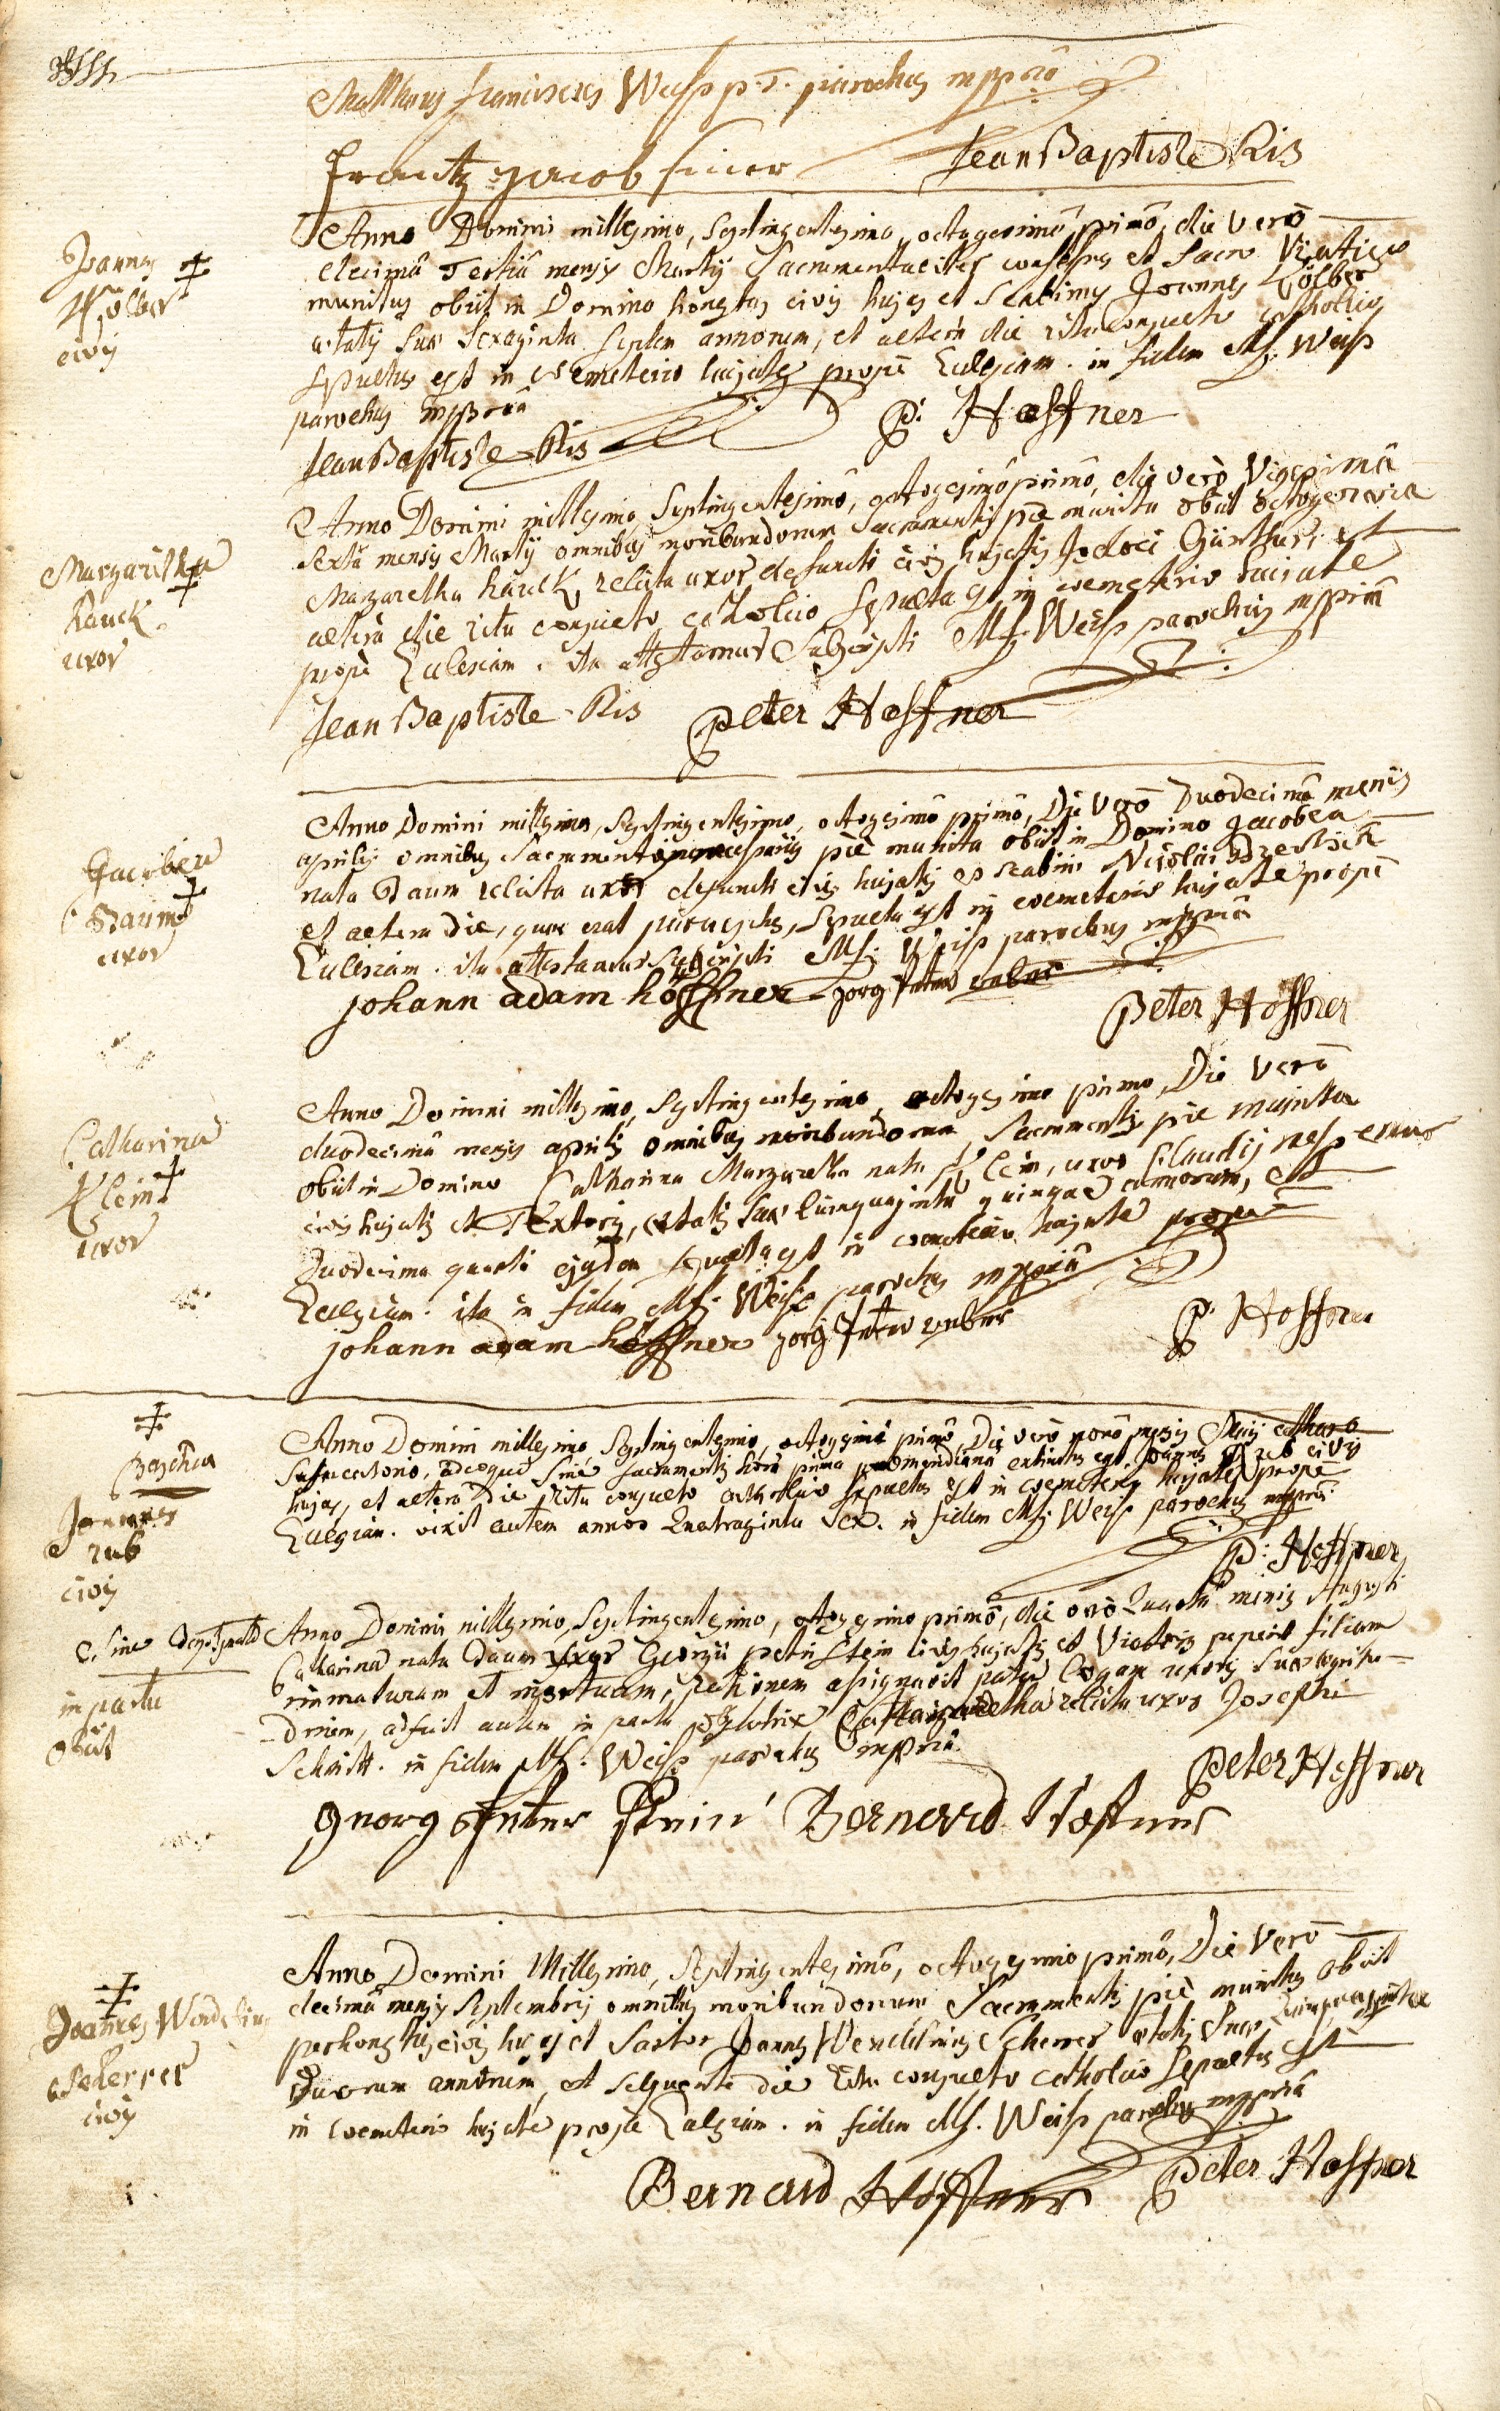 Matthæus Franciscus Weiss p.T. parochus mppriâ
Frantz Jacob
Jean Baptiste Ris
Joannes
Kölber
civis
Anno Domini millesimo, septingentesimo, octogesimô primô, die verô
decimâ Tertiâ mensis Martij Sacramentaliter confessus et Sacro Viatico
munitus obijt in Domino honestus civis hujas et Scabinus Joannes Kölber
ætatis suæ sexaginta septem annorum, et altera die ritu consueto catholico
sepultus est in coemeterio hujate prope Ecclesiam. in fidem Mf. Weiss
parochus mppriâ
P: Hoffner
Jean Baptiste Ris
Margaritha
Hauck
uxor
Anno Domini millesimo, septingentesimô, octogesimô primô, die verò Vigesimâ
sexta mensis Martij omnibus moribundorum Sacramentis piè munita obijt octogenaria
Margaretha hauck, relicta uxor defuncti civis hujatis Jodoci Günther, et
alterâ die ritu consueto catholico sepulta est in coemeterio huiate
propè Ecclesiam. ita attestamur Subscripti Mf. Weiss parochus mppriâ
Jean Baptiste Ris Peter Hoffner
Jacobea
Daum
uxor
Anno Domini millesimo, septingentesimo, octogesimô primô, Die Verô Duodecimâ mensis
aprilis omnibus Sacramentis piè munita obijt in Domino Jacobea
nata Daum relicta uxor defuncti civis hujatis et scabini Nicolai
et altera die, quæ erat parasceves, sepulta est in coemeterio hujate propè
Ecclesiam. ita attestamur subscripti Mf. Weiss parochus mppriâ
johann adam höffner jorg Peter weber
Peter Hoffner
Catharina
Klein
uxor
Anno Domini millesimo, septingentesimo, octogesimo primo, Die Verô
duodecimâ mensis aprilis omnibus moribundorum Sacramentis pie munita
obijt in Domino Catharina Margaretha nata Klein, uxor Claudij
civis hujatis et Textoris, ætatis suæ quinquaginta quinque annorum, et
Duodecima quarti ejusdem sepulta est in coemeterio hujate propè
Ecclesiam. ita in fidem Mf. Weiss parochus mppriâ
johann adam höffner jorg Peter weber
P. Hoffner
Joannes
rub
civis
Anno Domini millesimo septingentesimo, octogesimô primô, Die verò nonô mensis Maij catharo
Sufocatorio, adeoque Sine Sacramentis horâ primâ pomeridiana extinctus est Joannes rub civis
hujas, et altero Die ritu consueto catholico sepultus est in coemeterio hujate propè
Ecclesiam. vixit autem annos Quatraginta Sex. in fidem Mf. Weiss parochus mppriâ
P: Hoffner
Sine
in partu
obijt
Anno Domini millesimo, septingentesimo, octogesimo primô, die verò Quarta mensis Augusti
Catharina nata Daum uxor Georgii petri Stein civis hujatis et Vietoris peperit filiam
immaturam et mortuam, rationem assignavit pater
adfuit autem in partu obstetrix relicta uxor Josephi
Schmitt. in fidem Mf. Weiss parochus mppriâ
Peter Hoffner
Georg Peter Stein Bernard Hoffner
Joannes Wendelinus
Scherrer
civis
Anno Domini Millesimo, septingentesimô, octogesimo primô, Die Verô
decimâ mensis septembris omnibus moribundorum Sacramentis piè munitus obijt
perhonestus civis hujas et Sartor Joannes Wendelinus Scherrer ætatis suæ quinquaginta
Duorum annorum, et sequenti die ritu consueto catholico sepultus est
in coemeterio hujate prope Ecclesiam. in fidem Mf. Weiss parochus mppriâ
Bernard Hoffner Peter Hoffner